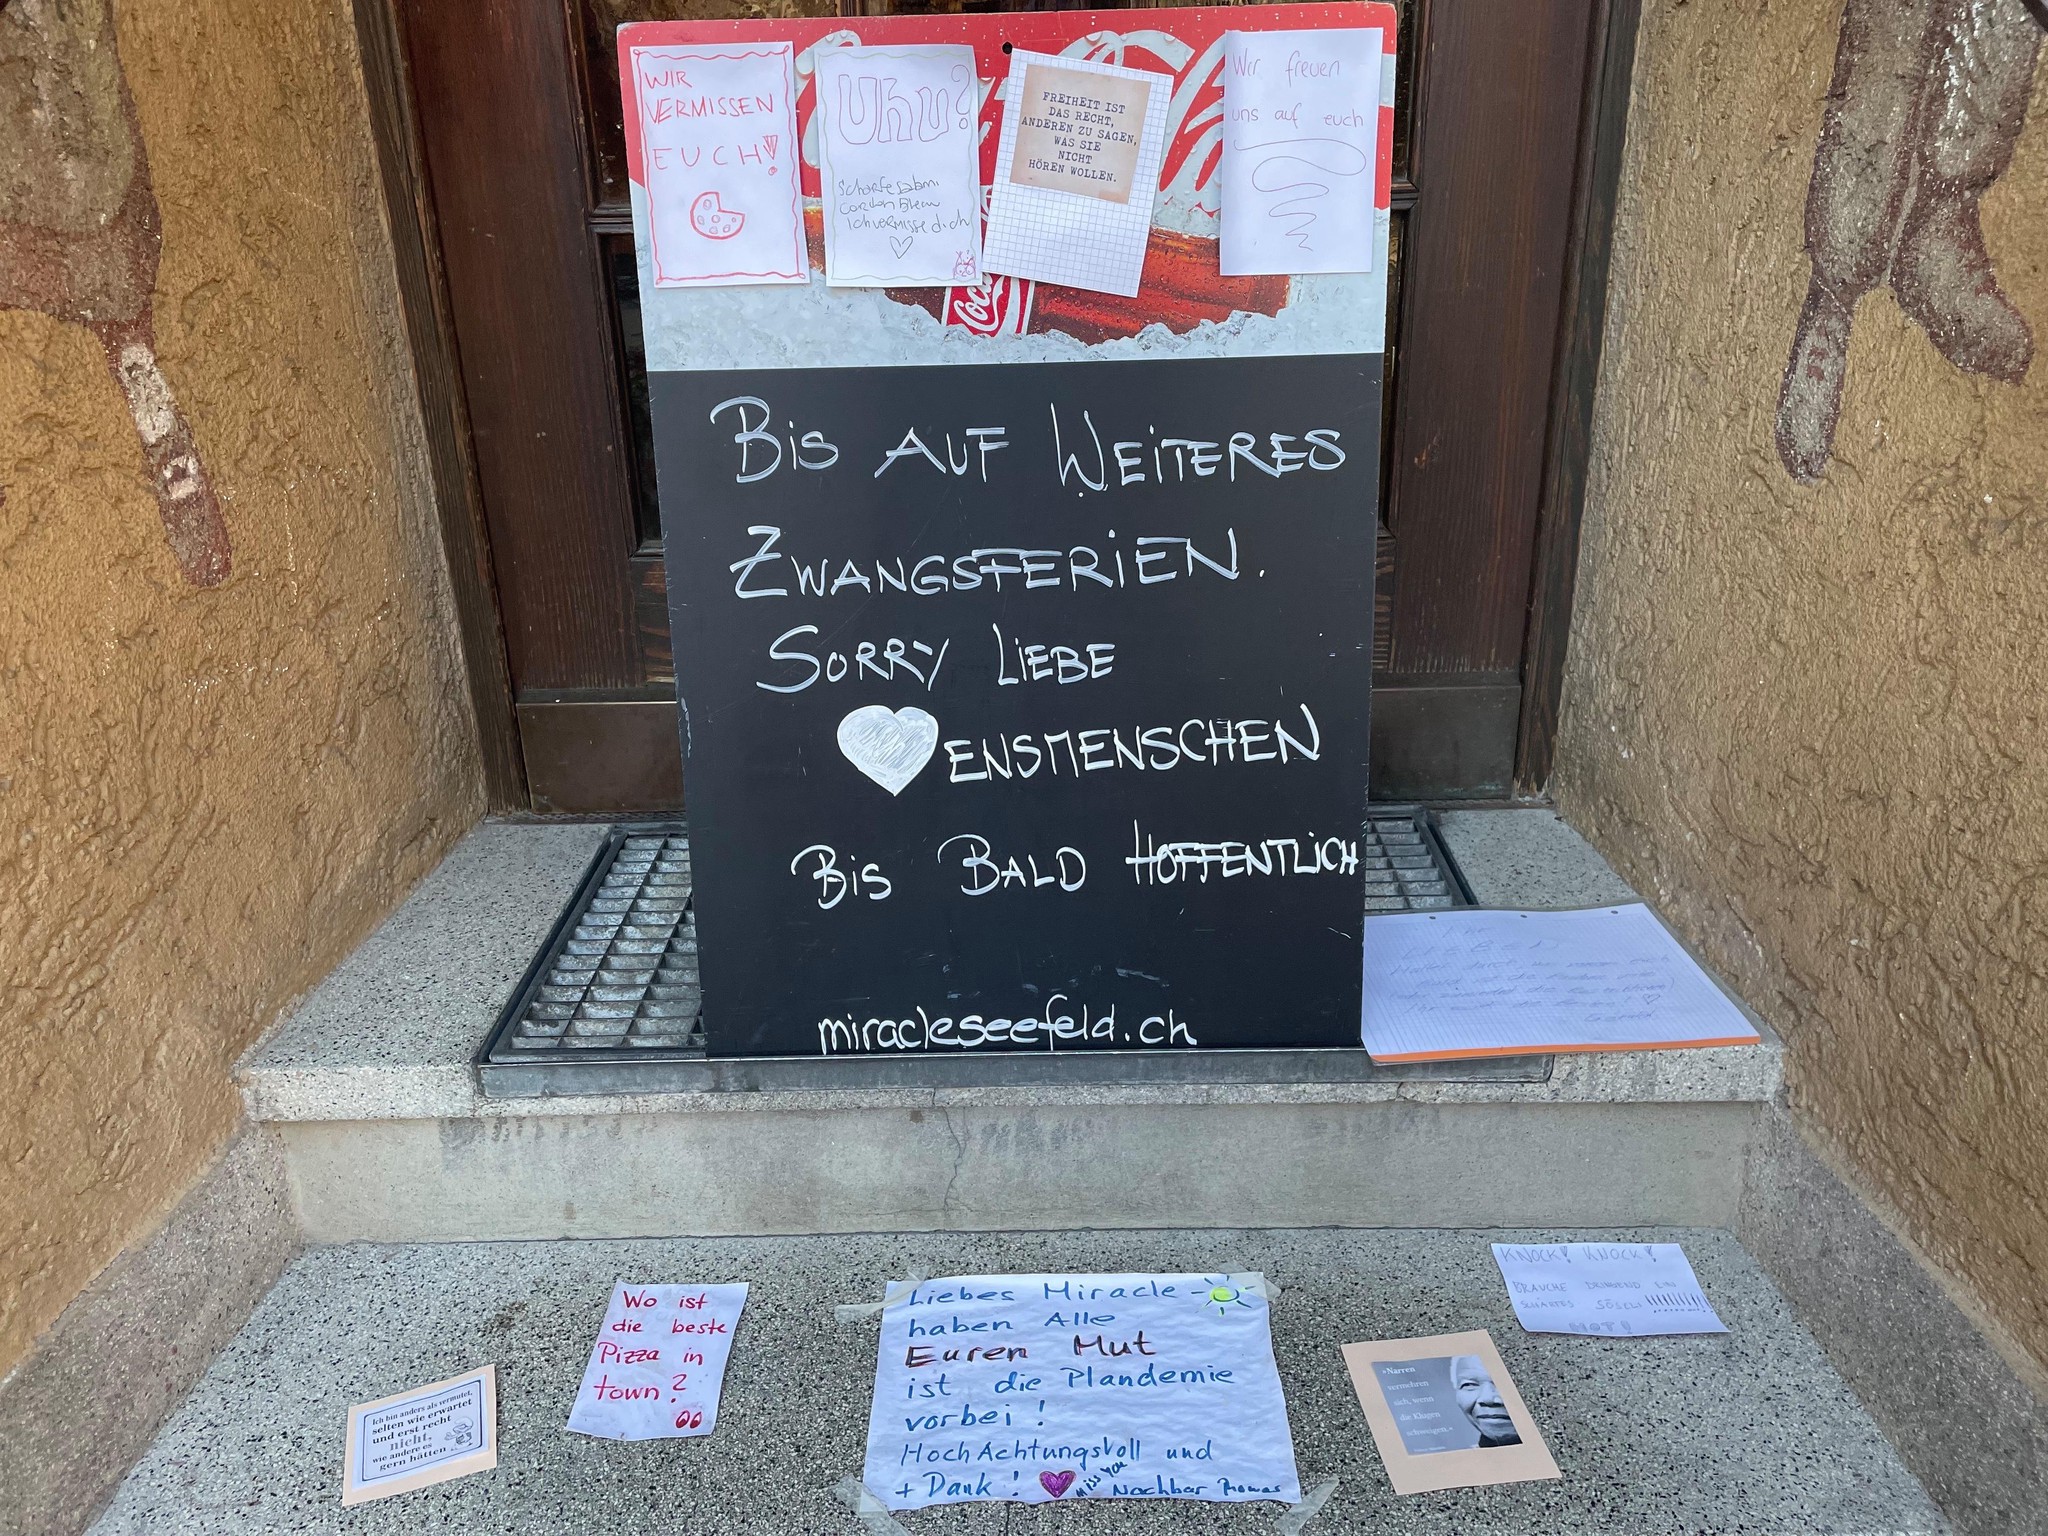 WIR
VERMISSEN
EUCH!
Uhu?
Cordon Bleu
ich vermisse dich
FREIHEIT IST
DAS RECHT,
ANDEREN ZU SAGEN,
WAS SIE
NICHT
HÖREN WOLLEN.
Wir freuen
uns auf euch
BIS AUF WEITERES
ZWANGSFERIEN.
SORRY LIEBE
ENSMENSCHEN
BIS BALD HOFFENTLICH
miracleseefeld.ch
KNOCK! KNOCK!
BRAUCHE DRINGEND EIN
SCHARFES
NOT!
Wo ist
die beste
Pizza in
town?
Liebes Miracle
haben Alle
Euren Mut
ist die Plandemie
vorbei!
HochAchtungsvoll und
+ Dank! Miss you Nachbar Thomas
Ich bin anders als vermutet,
selten wie erwartet
und erst recht
nicht,
wie andere es
gern hätten
»Narren
vermehren
sich, wenn
die Klugen
schweigen.«